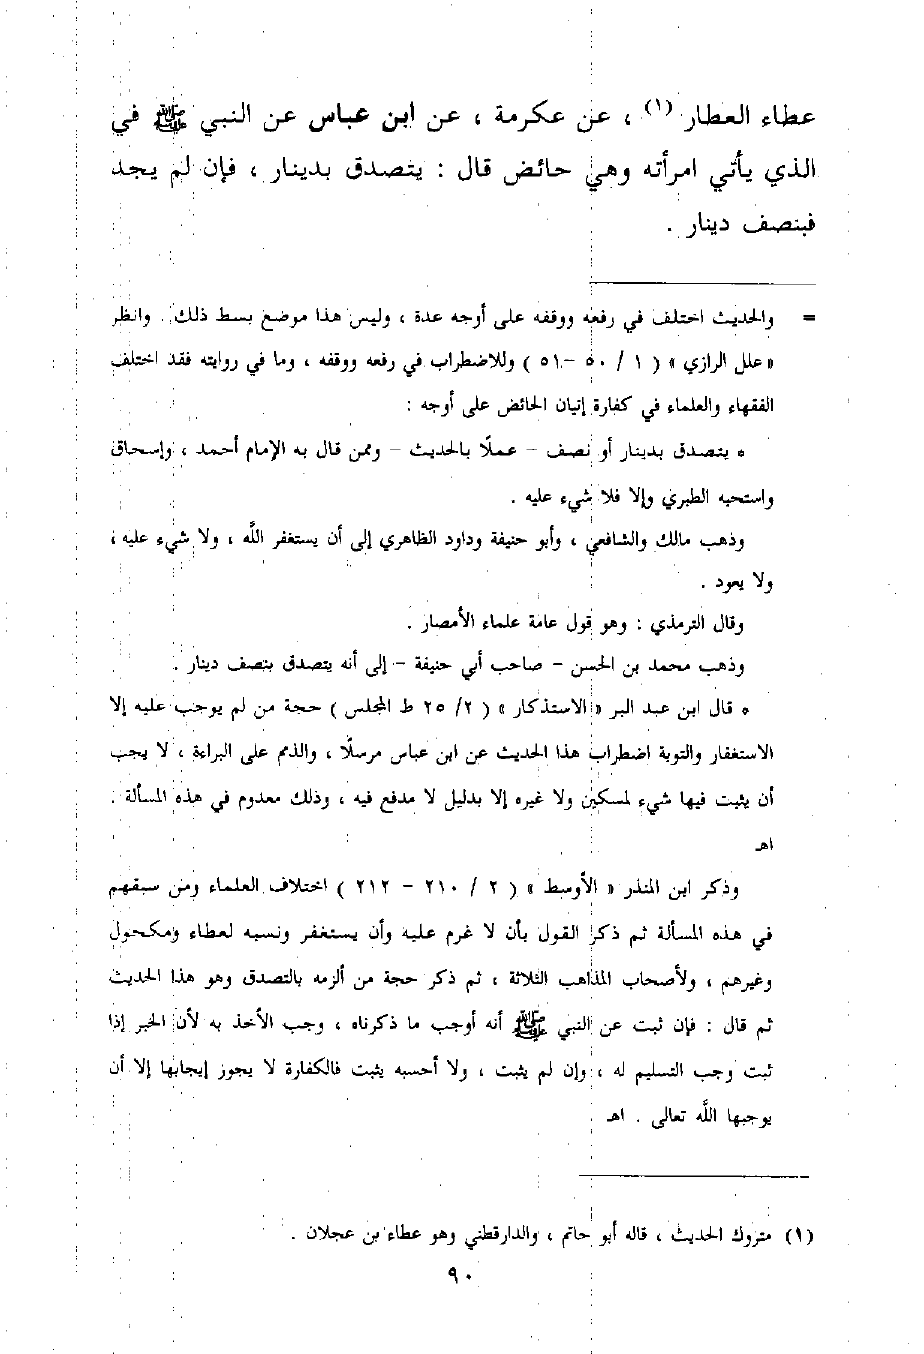 عطاء العطار (١) ، عن عكرمة ، عن ابن عباس عن النبي ﷺ في
الذي يأتي امرأته وهي حائض قال : يتصدق بدينار ، فإن لم يجد
فبنصف دينار .
= والحديث اختلف في رفعه ووقفه على أوجه عدة ، وليس هذا موضع بسط ذلك . وانظر
« علل الرازي » ( ١ / ٥٠ - ٥١ ) وللاضطراب في رفعه ووقفه ، وما في روايته فقد اختلف
الفقهاء والعلماء في كفارة إتيان الحائض على أوجه :
* يتصدق بدينار أو نصف - عملًا بالحديث - وممن قال به الإمام أحمد ، وإسحاق
واستحبه الطبري وإلا فلا شيء عليه .
وذهب مالك والشافعي ، وأبو حنيفة وداود الظاهري إلى أن يستغفر اللَّه ، ولا شيء عليه ،
ولا يعود .
وقال الترمذي : وهو قول عامة علماء الأمصار .
وذهب محمد بن الحسن - صاحب أبي حنيفة - إلى أنه يتصدق بنصف دينار .
* قال ابن عبد البر « الاستذكار » ( ٢/ ٢٥ ط المجلس ) حجة من لم يوجب عليه إلا
الاستغفار والتوبة اضطراب هذا الحديث عن ابن عباس مرسلًا ، والذمم على البراءة ، لا يجب
أن يثبت فيها شيء لمسكين ولا غيره إلا بدليل لا مدفع فيه ، وذلك معدوم في هذه المسألة .
اهـ
وذكر ابن المنذر « الأوسط » ( ٢ / ٢١٠ - ٢١٢ ) اختلاف العلماء ومن سبقهم
في هذه المسألة ثم ذكر القول بأن لا غرم عليه وأن يستغفر ونسبه لعطاء ومكحول
وغيرهم ، ولأصحاب المذاهب الثلاثة ، ثم ذكر حجة من ألزمه بالتصدق وهو هذا الحديث
ثم قال : فإن ثبت عن النبي ﷺ أنه أوجب ما ذكرناه ، وجب الأخذ به لأن الخبر إذا
ثبت وجب التسليم له ، وإن لم يثبت ، ولا أحسبه يثبت فالكفارة لا يجوز إيجابها إلا أن
يوجبها اللَّه تعالى . اهـ
(١) متروك الحديث ، قاله أبو حاتم ، والدارقطني وهو عطاء بن عجلان .
٩٠